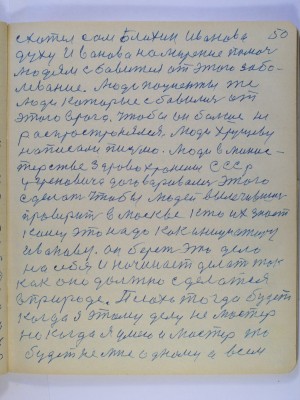 схотел сам Блохин Иванова 50
духу Иванова намерение помоч
людям сбавится от этого забо-
левание. Люди поциенты же
люди каторые сбавилися от
этого врага, чтобы он больше ни
распространялся. Люди Хрущеву
написали письмо. Люди в минис-
терстве здровохранения СССР
договаривались этого
сделат чтобы людей вылечивших
проверит в Москве. Кто их знает
кому это надо как никому этому
Иванову. он берет это дело
на себя и начинает делат так
как оно должно сделатся
в природе. Плохо тогда будет
когда я этому делу не мастер
но когда я умею и мастер то
будет не мне одному а всем